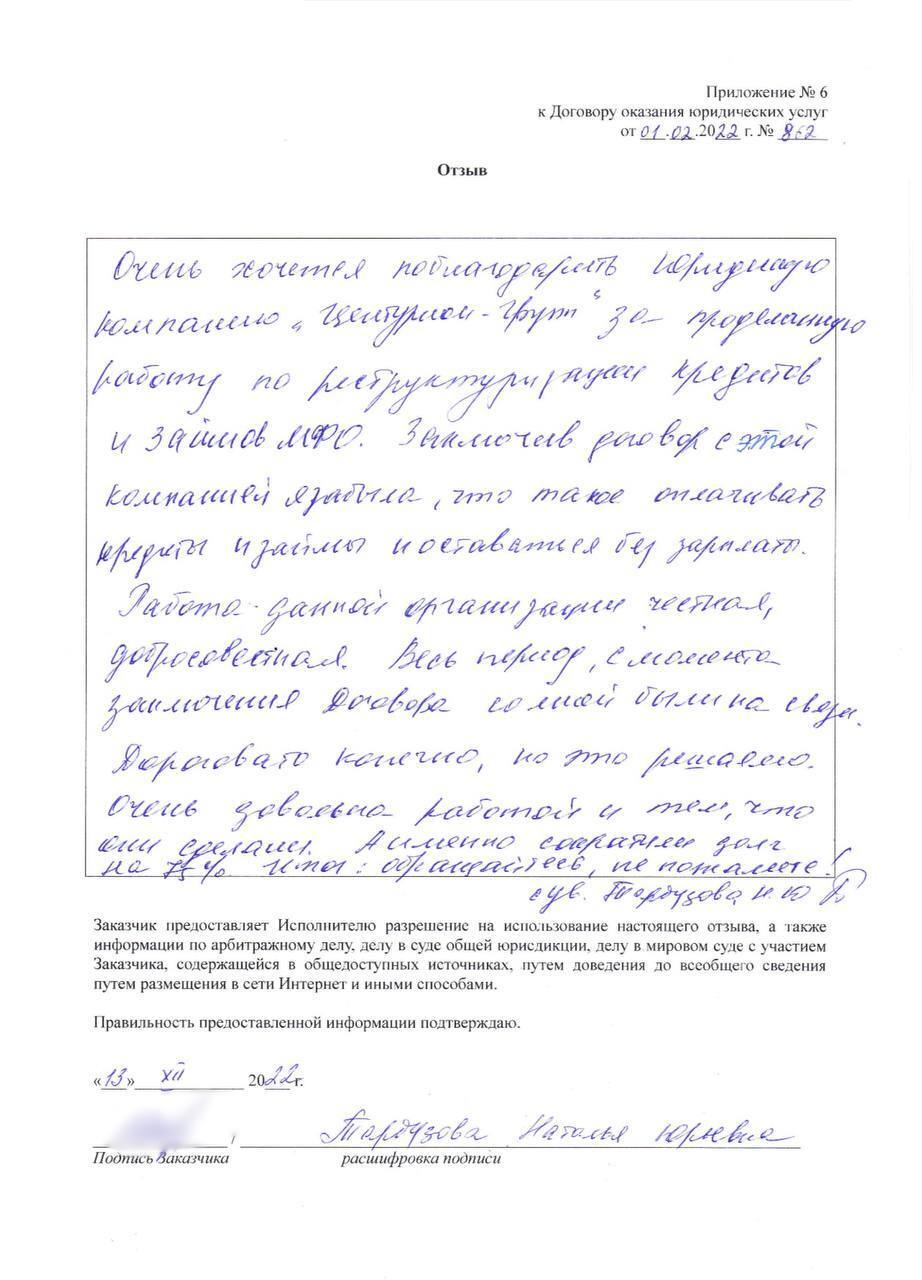 Приложение № 6
к Договору оказания юридических услуг
от 01.02.2022 г. № 8-2
Отзыв
Очень хочется поблагодарить Юридическую
компанию „Центурион-Групп" за проделанную
работу по реструктуризации кредитов
и займов МФО. Заключив договор с этой
компанией я забыла, что такое оплачивать
кредиты и займы и оставаться без зарплаты.
Работа данной организации честная,
добросовестная. Весь период, с момента
заключения Договора со мной были на связи.
Дороговато конечно, но это решаемо.
Очень довольна работой и тем, что
они сделали. А именно сократили долг
на 75% Итог: обращайтесь, не пожалеете!
с ув. Тардузова Н. Ю
Заказчик предоставляет Исполнителю разрешение на использование настоящего отзыва, а также
информации по арбитражному делу, делу в суде общей юрисдикции, делу в мировом суде с участием
Заказчика, содержащейся в общедоступных источниках, путем доведения до всеобщего сведения
путем размещения в сети Интернет и иными способами.
Правильность предоставленной информации подтверждаю.
«13» XII 2022 г.
/ Тардузова Наталья Юрьевна
Подпись Заказчика расшифровка подписи